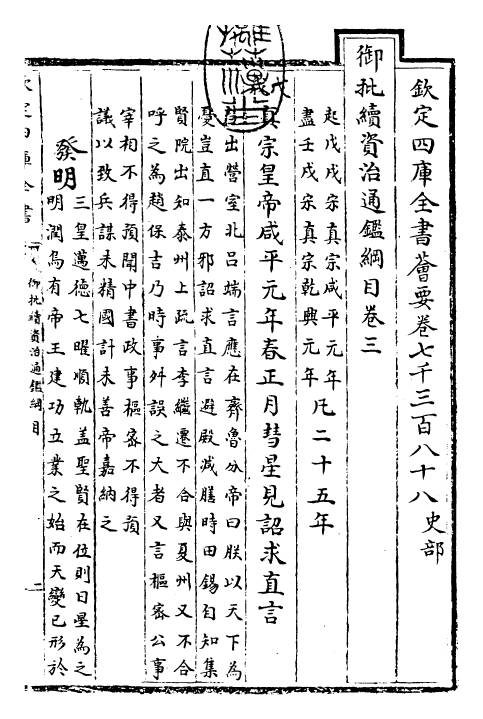 欽定四庫全書薈要卷七千三百八十八史部
御批續資治通鑑綱目卷三
起戊戌宋真宗咸平元年
盡壬戌宋真宗乾興元年
凡二十五年
戊戌真宗皇帝咸平元年春正月彗星見詔求直言
出營室北呂端言應在齊魯分帝曰朕以天下為
憂豈直一方邪詔求直言避殿減膳時田錫自知集
賢院出知泰州上疏言李繼遷不合與夏州又不合
呼之為趙保吉乃時事舛誤之大者又言樞密公事
宰相不得預聞中書政事樞密不得預
議以致兵謀未精國計未善帝嘉納之
發明
三皇邁德七曜順軌蓋聖賢在位則日星為之
明潤烏有帝王建功立業之始而天變已形於
欽定四庫全書
御批續資治通鑑綱目
二